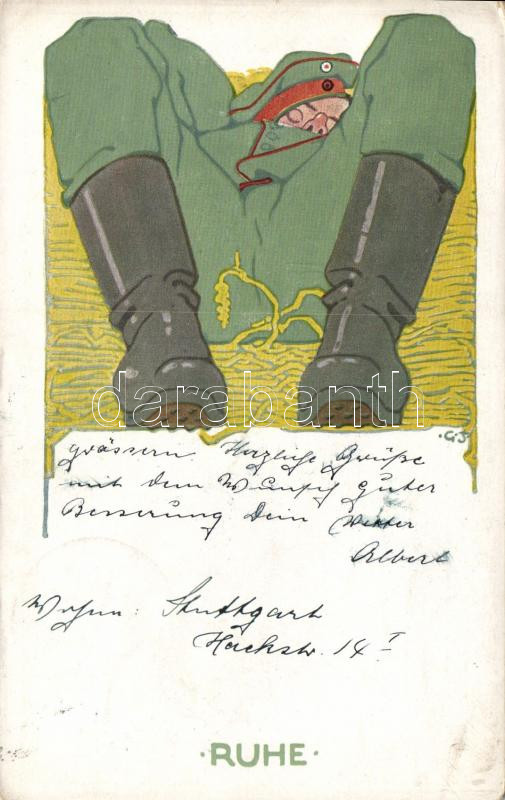 G.S.
darabanth
grössern. Herzliche Grüße
mit dem Wunsch guter
Besserung Dein Vetter
Albert
Wohn: Stuttgart
Hackstr. 14 I
·RUHE·